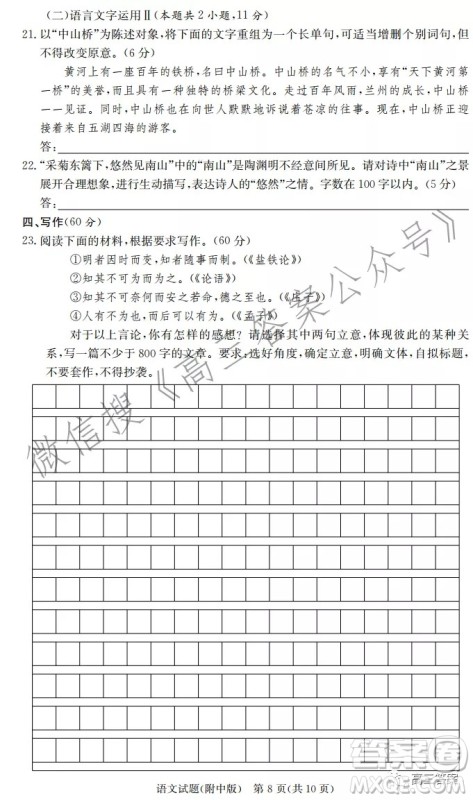 (二)语言文字运用Ⅱ(本题共2小题,11分)
21.以“中山桥”为陈述对象,将下面的文字重组为一个长单句,可适当增删个别词句,但
不得改变原意。(6分)
黄河上有一座百年的铁桥,名曰中山桥。中山桥的名气不小,享有“天下黄河第
一桥”的美誉,而且具有一种独特的桥梁文化。走过百年风雨,兰州的成长,中山桥
一一见证。同时,中山桥也在向世人默默地诉说着苍凉的往事。现在,中山桥正迎
接着来自五湖四海的游客。
答:
22.“采菊东篱下,悠然见南山”中的“南山”是陶渊明不经意间所见。请对诗中“南山”之景
展开合理想象,进行生动描写,表达诗人的“悠然”之情。字数在100字以内。(5分)
答:
四、写作(60分)
23.阅读下面的材料,根据要求写作。(60分)
①明者因时而变,知者随事而制。(《盐铁论》)
②知其不可为而为之。(《论语》)
③知其不可奈何而安之若命,德之至也。(《庄子》)
④人有不为也,而后可以有为。(《孟子》)
对于以上言论,你有怎样的感想?请选择其中两句立意,体现彼此的某种关
系,写一篇不少于800字的文章。要求:选好角度,确定立意,明确文体,自拟标题,
不要套作,不得抄袭。
微信搜《高三答案公众号》
语文试题(附中版) 第8页(共10页)
高三答案
答案圈
MXQE.COM